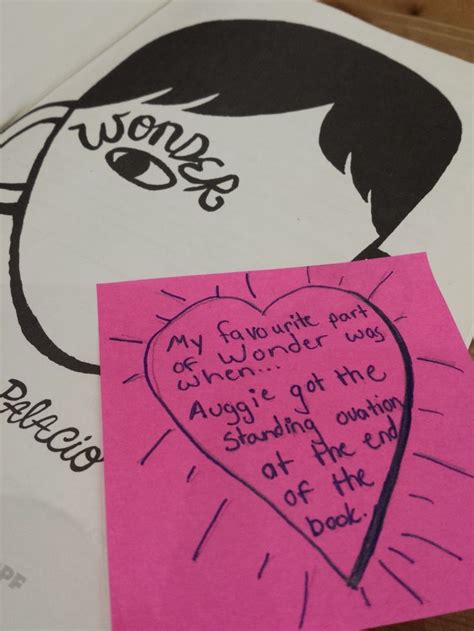 WONDER
PALACIO
My favourite part
of Wonder was
when...
Auggie got the
standing ovation
at the end
of the
book.